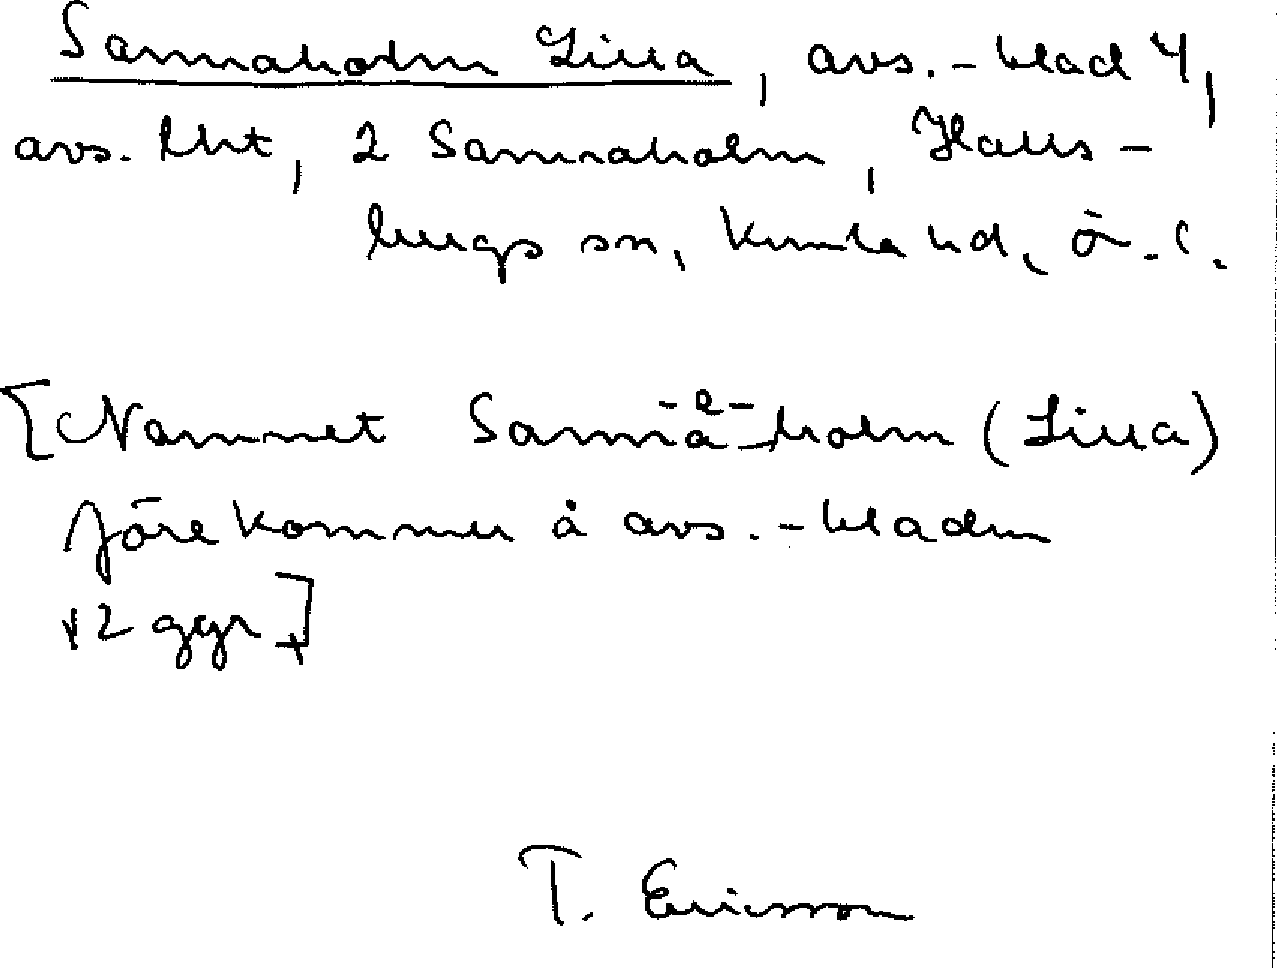 Sannaholm Lilla, avs.-blad 4,
avs. lht, 2 Sannaholm, Halls-
bergs sn, Kumla hd, ö.
[Namnet Sannaholm (Lilla)
förekommer å avs.-bladen
2 ggr]
T. Ericsson